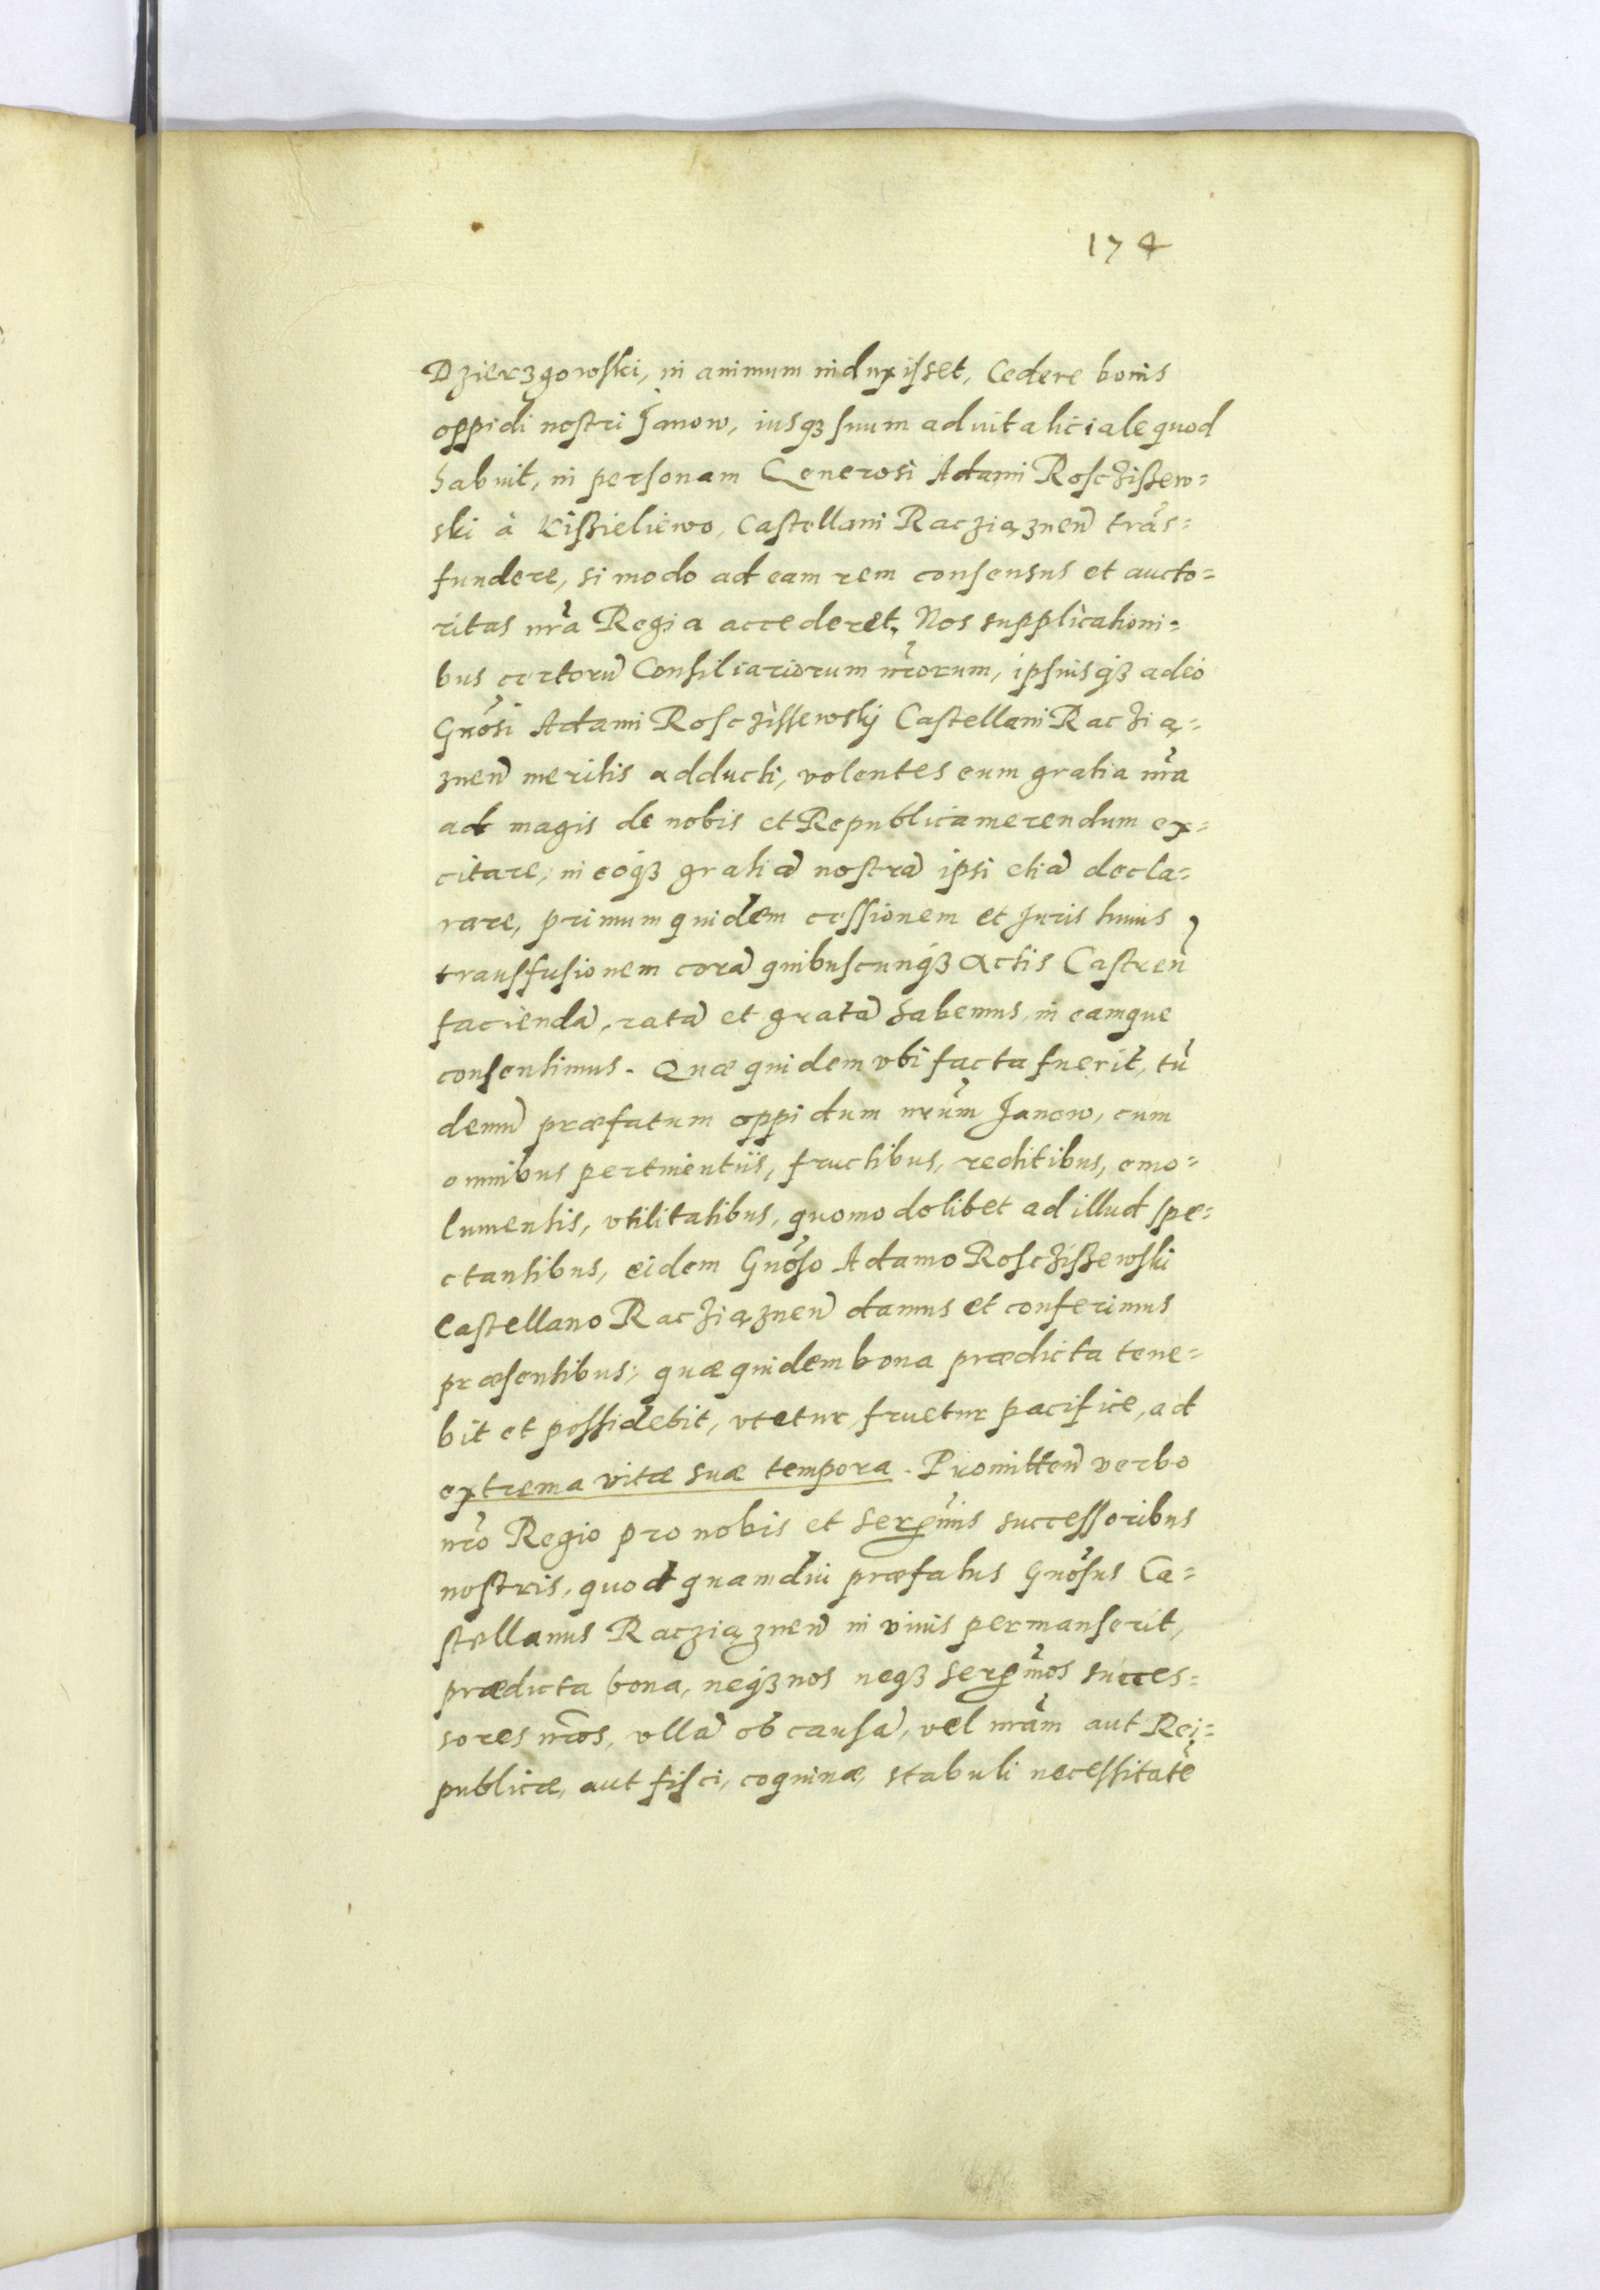 174
Dzierzgowski, in animum induxisset, Cedere bonis
oppidi nostri Janow, iusq3 suum aduitaliciale quod
habuit, in personam Generosi Adami Roschißew=
ski à Kißieliewo, Castellani Racziąznen̄ trās=
fundere, si modo ad eam rem consensus et aucto=
ritas nr̄a Regia accederet. Nos supplicationi=
bus certorū Consiliariorum nr̄orum, ipsiusq3 adeo
Gnōsi Adami Rosczissewskj Castellani Raczią=
znen̄ meritis adducti, volentes eum gratia nr̄a
ad magis de nobis et Republica merendum ex=
citare, in eoq3 gratiā nostrā ipsi etiā decla=
rare, primum quidem cessionem et Juris huius
transfusionem corā quibuscunq3 Actis Castren̄
faciendā, ratā et gratā habemus, in eamque
consentimus. Quæ quidem vbi facta fuerit, tū
demū præfatum oppidum nr̄um Janow, cum
omnibus pertinentiis, fructibus, reditibus, emo=
lumentis, vtilitatibus, quomodolibet ad illud spe=
ctantibus, eidem Gnōso Adamo Roscziszewski
Castellano Racziąznen̄ damus et conferimus
præsentibus; quæ quidem bona prædicta tene=
bit et possidebit, vtetur, fruetur pacifice, ad
extrema vitæ suæ tempora. Promitten̄ verbo
nr̄o Regio pro nobis et Serēnnis successoribus
nostris, quod quamdiu præfatus Gnōsus Ca=
stellanus Racziąznen̄ in viuis permanserit,
prædicta bona, neq3 nos neq3 Serēmos succes=
sores nr̄os, vllā ob causā, vel nr̄am aut Rei=
publicæ, aut fisci, coquinæ, stabuli necessitatē